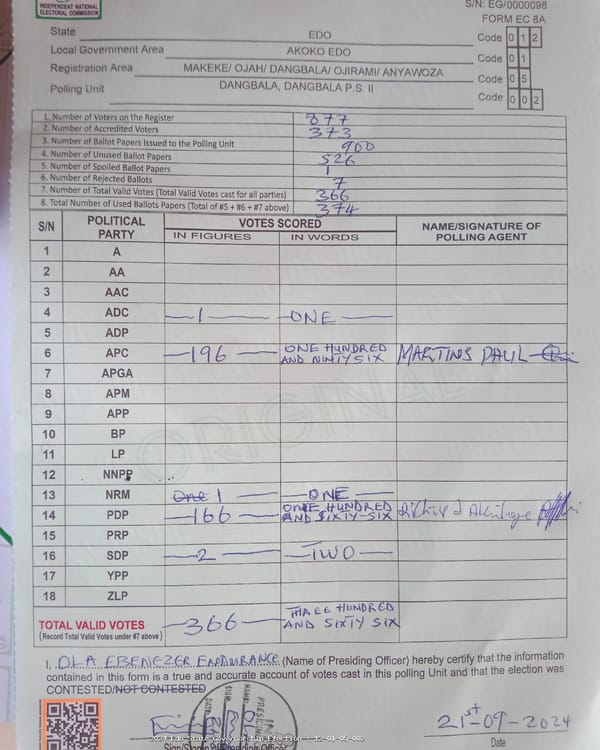 INDEPENDENT NATIONAL
ELECTORAL COMMISSION
S/N: EG/0000098
FORM EC 8A
State EDO Code 0 1 2
Local Government Area AKOKO EDO Code 0 1
Registration Area MAKEKE/ OJAH/ DANGBALA/ OJIRAMI/ ANYAWOZA Code 0 5
Polling Unit DANGBALA, DANGBALA P.S. II Code 0 0 2
1. Number of Voters on the Register 877
2. Number of Accredited Voters 373
3. Number of Ballot Papers Issued to the Polling Unit 900
4. Number of Unused Ballot Papers 526
5. Number of Spoiled Ballot Papers 1
6. Number of Rejected Ballots 7
7. Number of Total Valid Votes (Total Valid Votes cast for all parties) 366
8. Total Number of Used Ballots Papers (Total of #5 + #6 + #7 above) 374
S/N POLITICAL PARTY VOTES SCORED NAME/SIGNATURE OF POLLING AGENT
IN FIGURES IN WORDS
1 A
2 AA
3 AAC
4 ADC 1 ONE
5 ADP
6 APC 196 ONE HUNDRED AND NINTYSIX MARTINS PAUL
7 APGA
8 APM
9 APP
10 BP
11 LP
12 NNPP
13 NRM One 1 ONE
14 PDP 166 ONE HUNDRED AND SIXTY-SIX
15 PRP
16 SDP 2 TWO
17 YPP
18 ZLP
TOTAL VALID VOTES 366 THREE HUNDRED AND SIXTY SIX
(Record Total Valid Votes under #7 above)
ORIGINAL
I, OLA EBENEZER ENDURANCE (Name of Presiding Officer) hereby certify that the information
contained in this form is a true and accurate account of votes cast in this polling Unit and that the election was
CONTESTED/NOT CONTESTED
21st-09-2024
Date